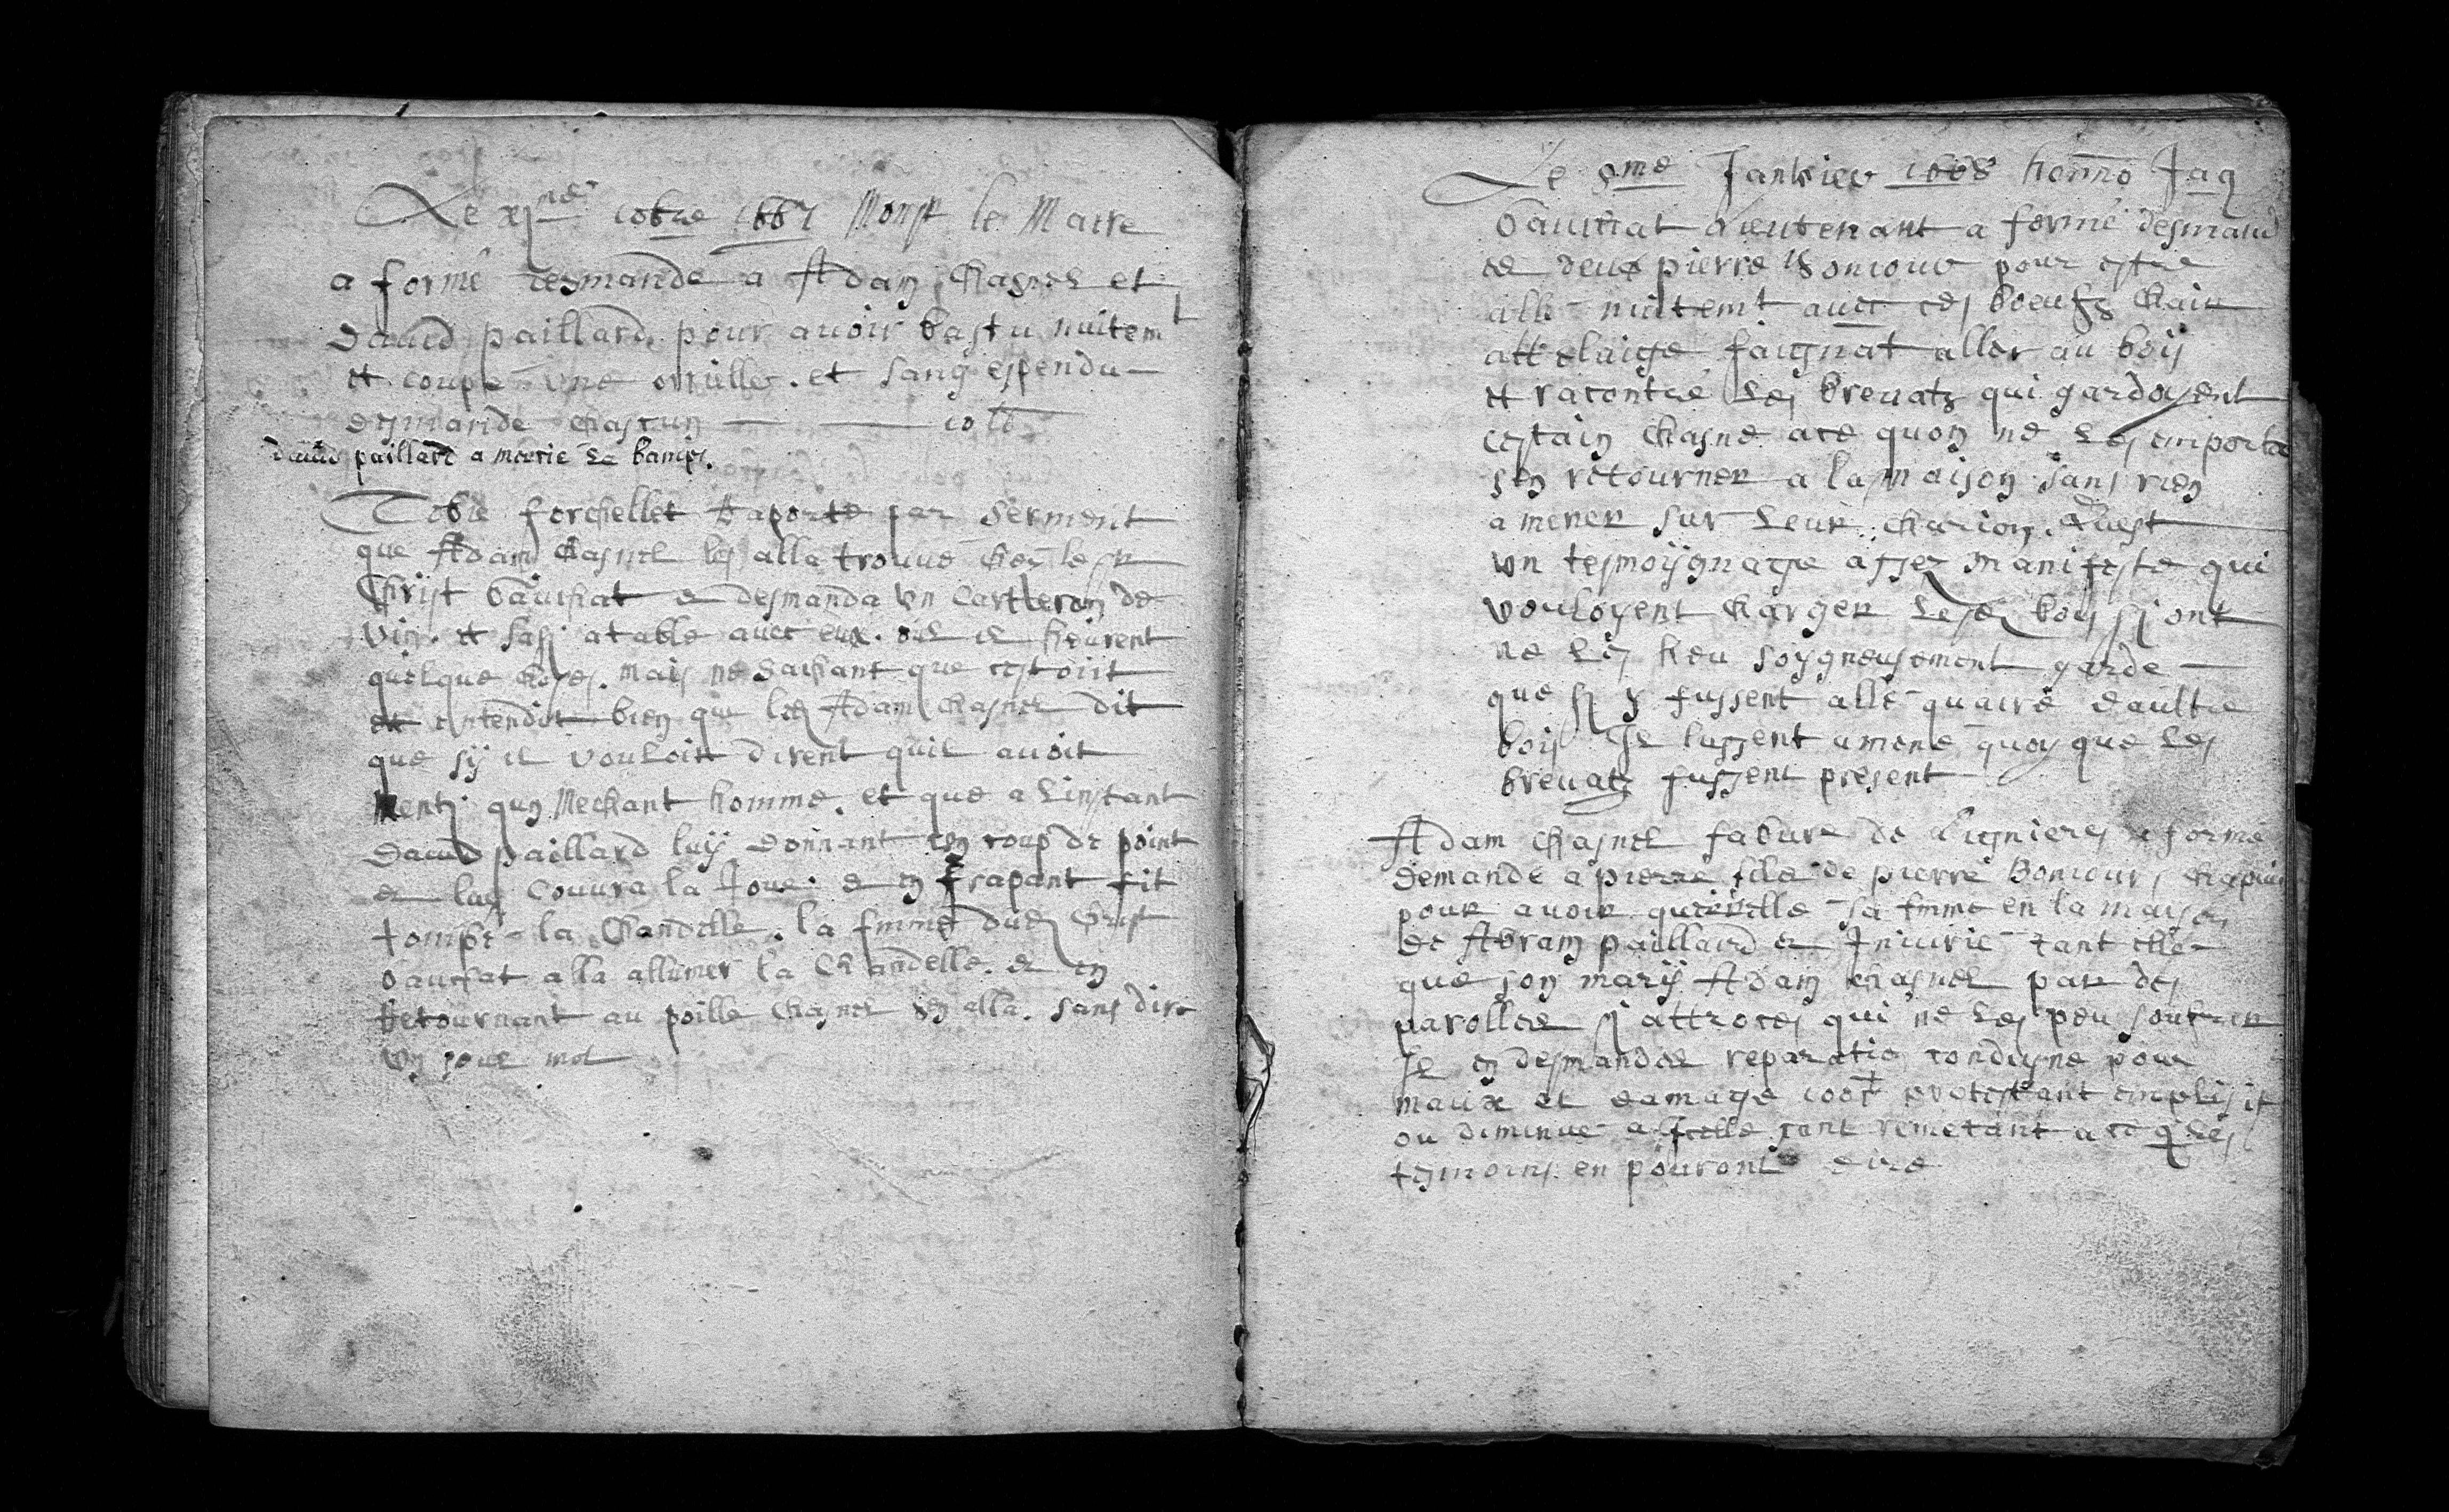 Le xj.me 10bre 1667 Monsr le Maire
a formé desmande a Adam Chasnel et
Dauid paillard pour auoir bastu nuitemt
et coupé une orrille et sang espendu
desmande chascun 10 lb
Dauid paillard a mercié le bamps.
Tobie forchellet Raporte par serment
que Adam Chasnel les alla trouué ches le sr
Christ Vauchat & desmanda un Cartteron de
vin. et sassy atable auec eux. &
quelque choses. mais ne sachant que cestoist
entendit bien que led Adam Chasnel dit
que sy il vouloit dirent quil auoit
menty quy Mechant homme. et que a linstant
Dauid paillard luy donnant un coup de point
& luy Couura la Joue. & en frapant fit
tompé la Chandelle. la femme dud Christ
Vauchat alla allumer la Chandelle. & en
Retournant au poille Chasnel sen alla. sans dire
un seul mot
Le 9me Januier 1668 honno Jaq
Vauchat Lieutenant a formé desmand
de deux pierre Boniour pour estre
allé nuitemt auec des boeufz Chair
attelaige faignat aller au bois
et racontre les breuatz qui gardoyent
certain chasne ace quon ne les emporta
sen retourner a la maison sans rien
amener sur leur charion. Quest
un tesmoygnage assez manifeste qui
vouloyent charger lesd bois sy ont
ne les heu soygneusement garde
que sy y fussent allé quaire daultre
bois Il lussent amene quoy que les
breuatz fussent present
Adam Chasnel fabure de Lignieres a formé
demande a pierre filz de pierre Boniour, Chapuis
pour auoir quereille sa femme en la maison
de Abram paillard & Iniurié tant elle
que son mary Adam Chasnel par des
parolles sy attroces qui ne les peu souffrir
Il en desmandes reparation condigne pour
maux et damage 100 protestant
ou diminue a Icelle sont remetant a ce q les
tesmoins en pouront dire